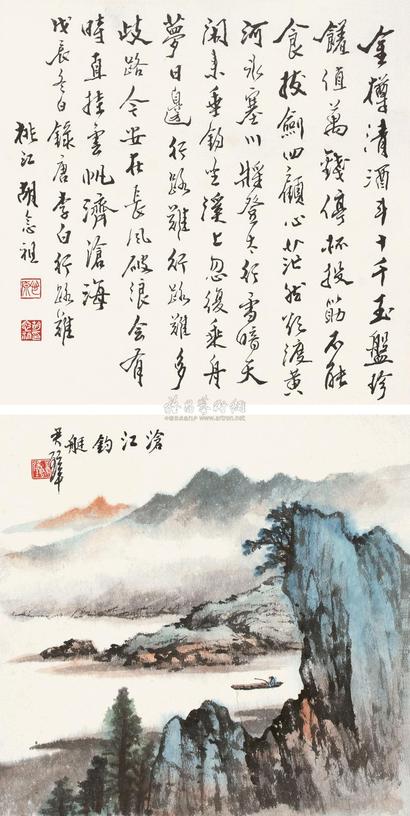 金樽清酒斗十千玉盤珍
饈值萬錢停杯投筯不能
食拔劍四顧心茫然欲渡黃
河冰塞川將登太行雪暗天
閑來垂釣坐溪上忽復乘舟
夢日邊行路難行路難多
歧路今安在長風破浪會有
時直掛雲帆濟滄海
戊辰冬日錄唐李白行路難
桃江胡念祖
滄江釣艇
君璧